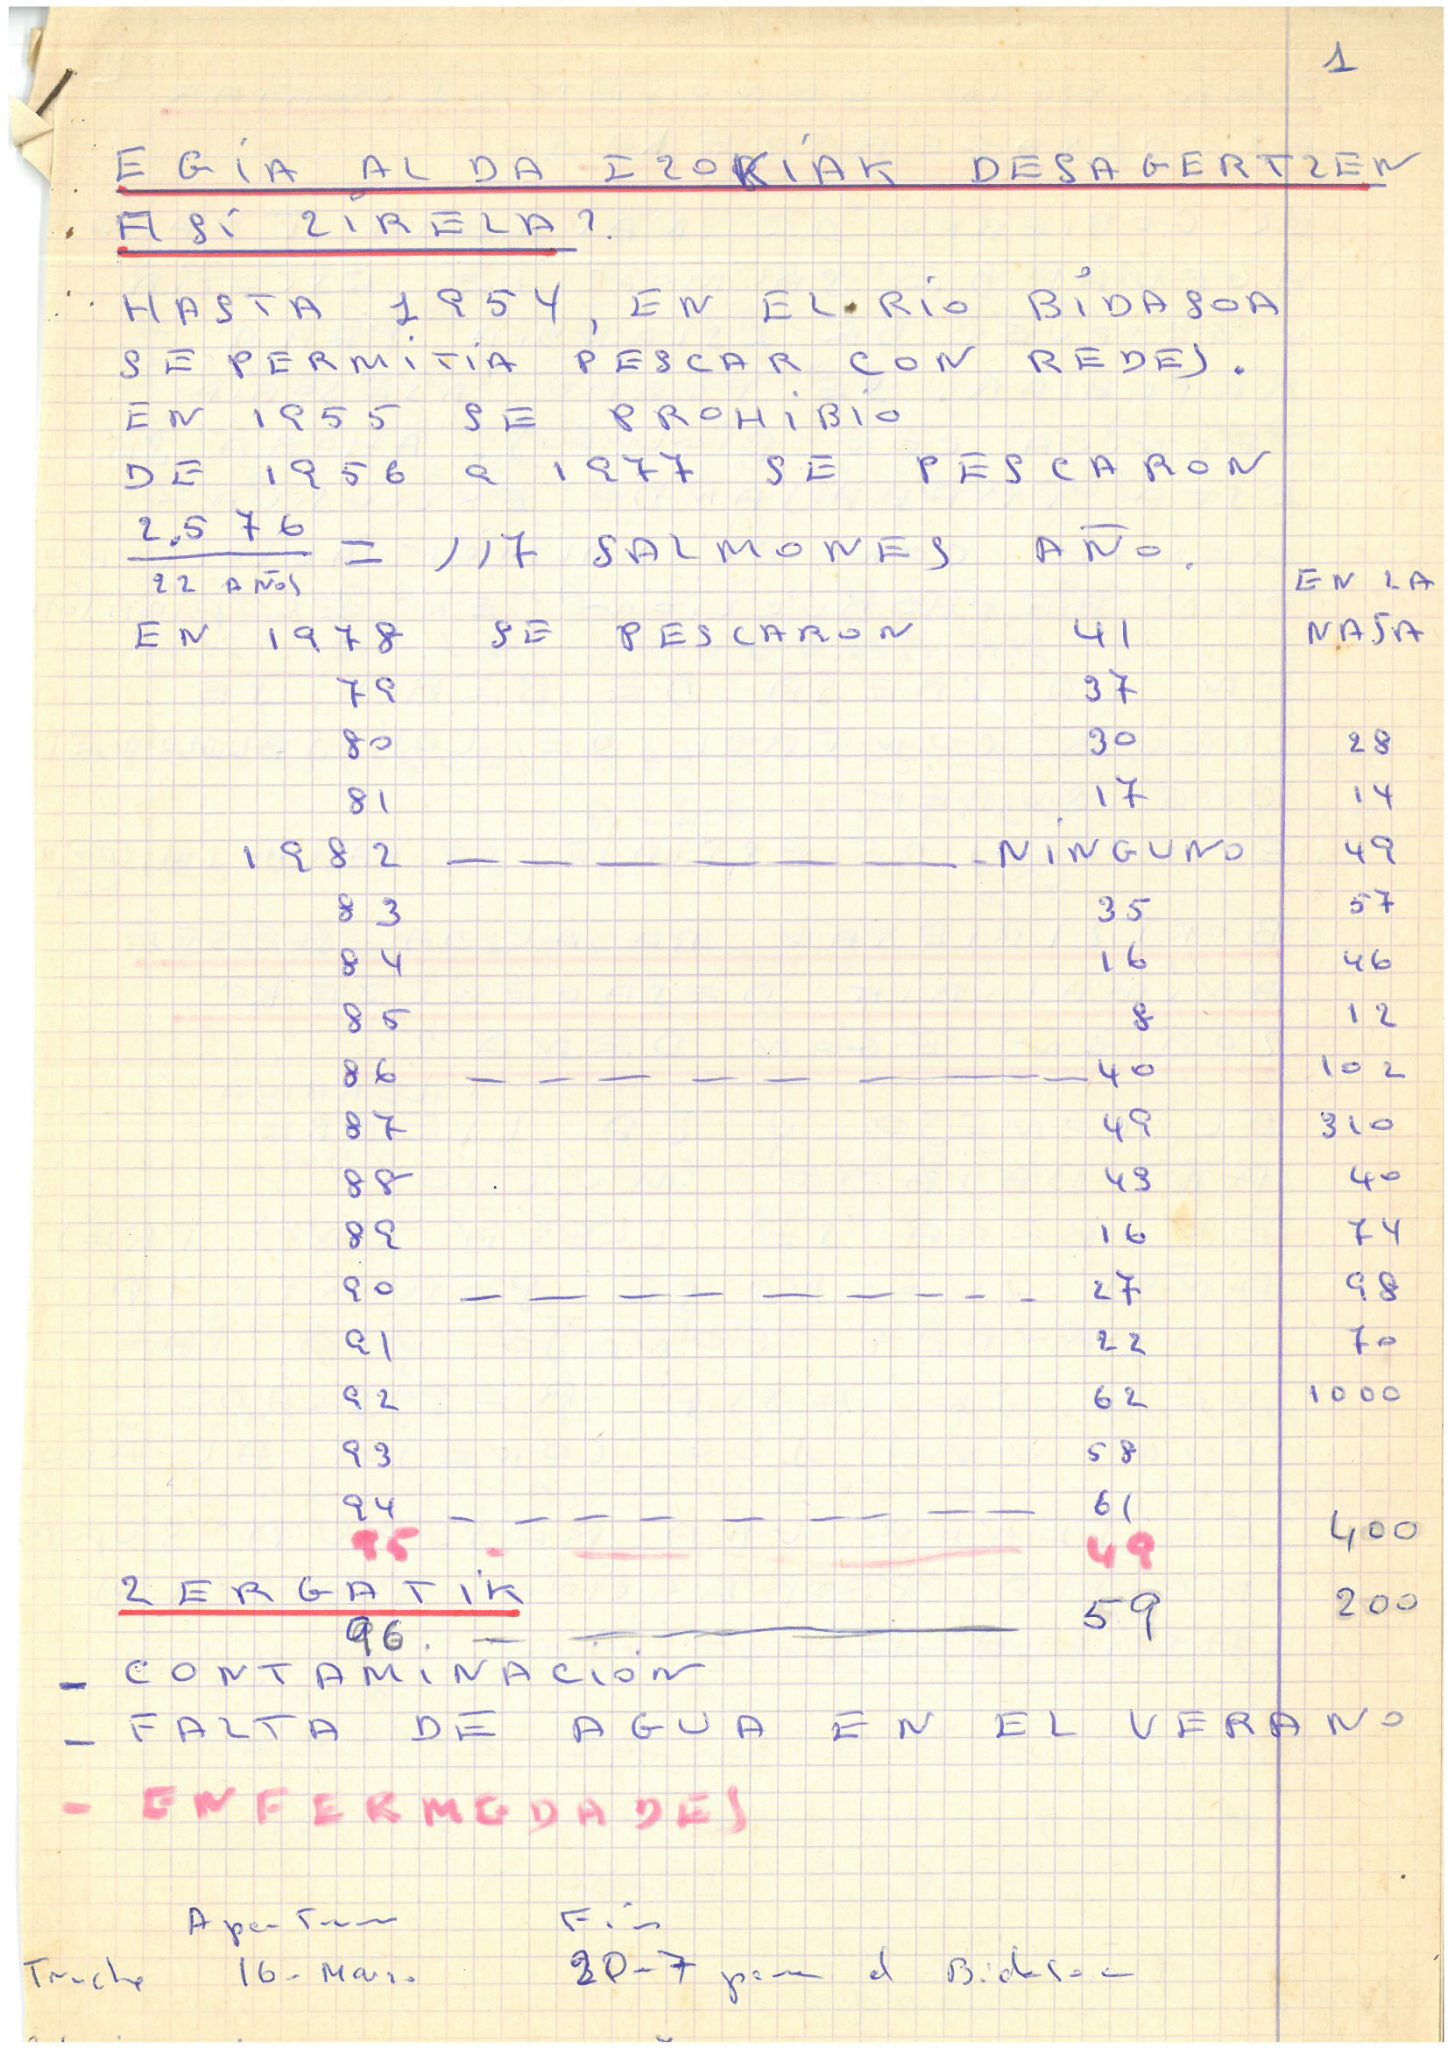 1
EGIA AL DA IZOKIAK DESAGERTZEN
ASI ZIRELA?
HASTA 1954, EN EL RIO BIDASOA
SE PERMITIA PESCAR CON REDES.
EN 1955 SE PROHIBIO
DE 1956 a 1977 SE PESCARON
2.576
22 AÑOS = 117 SALMONES AÑO.
EN LA
EN 1978 SE PESCARON 41 NASA
79 37
80 30 28
81 17 14
1982 — — — — — — — NINGUNO 49
83 35 57
84 16 46
85 8 12
86 — — — — — — — 40 102
87 49 310
88 43 40
89 16 74
90 — — — — — — — - - 27 98
91 22 70
92 62 1000
93 58
94 — — — — — — — 61
95 - — — 49 400
ZERGATIK
96. — — 59 200
- CONTAMINACIÓN
- FALTA DE AGUA EN EL VERANO
- ENFERMEDADES
Apertura Fin
Trucha 16-Marzo 20-7 para el Bidasoa